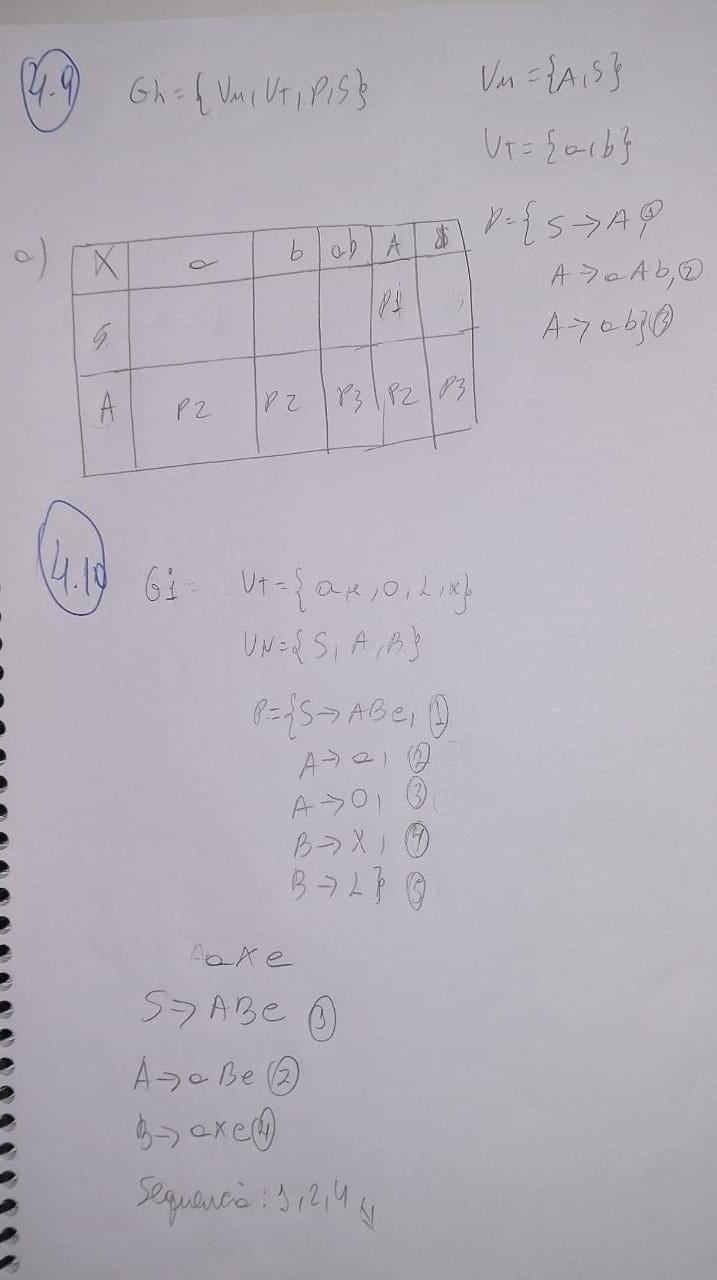 4.9 Gh = { Vn, Vt, P, S } Vn = {A, S}
Vt = {a, b}
P = { S → A, ①
A → aAb, ②
A → ab} ③
a)
X a b ab A $
S P1
A P2 P2 P3 P2 P3
4.10 Gi = Vt = { a, e, o, L, x}
VN = {S, A, B}
P = {S → ABe, ①
A → a, ②
A → O, ③
B → X, ④
B → L} ⑤
axe
S → ABe ①
A → aBe ②
B → axe ④
Sequencia: 1, 2, 4